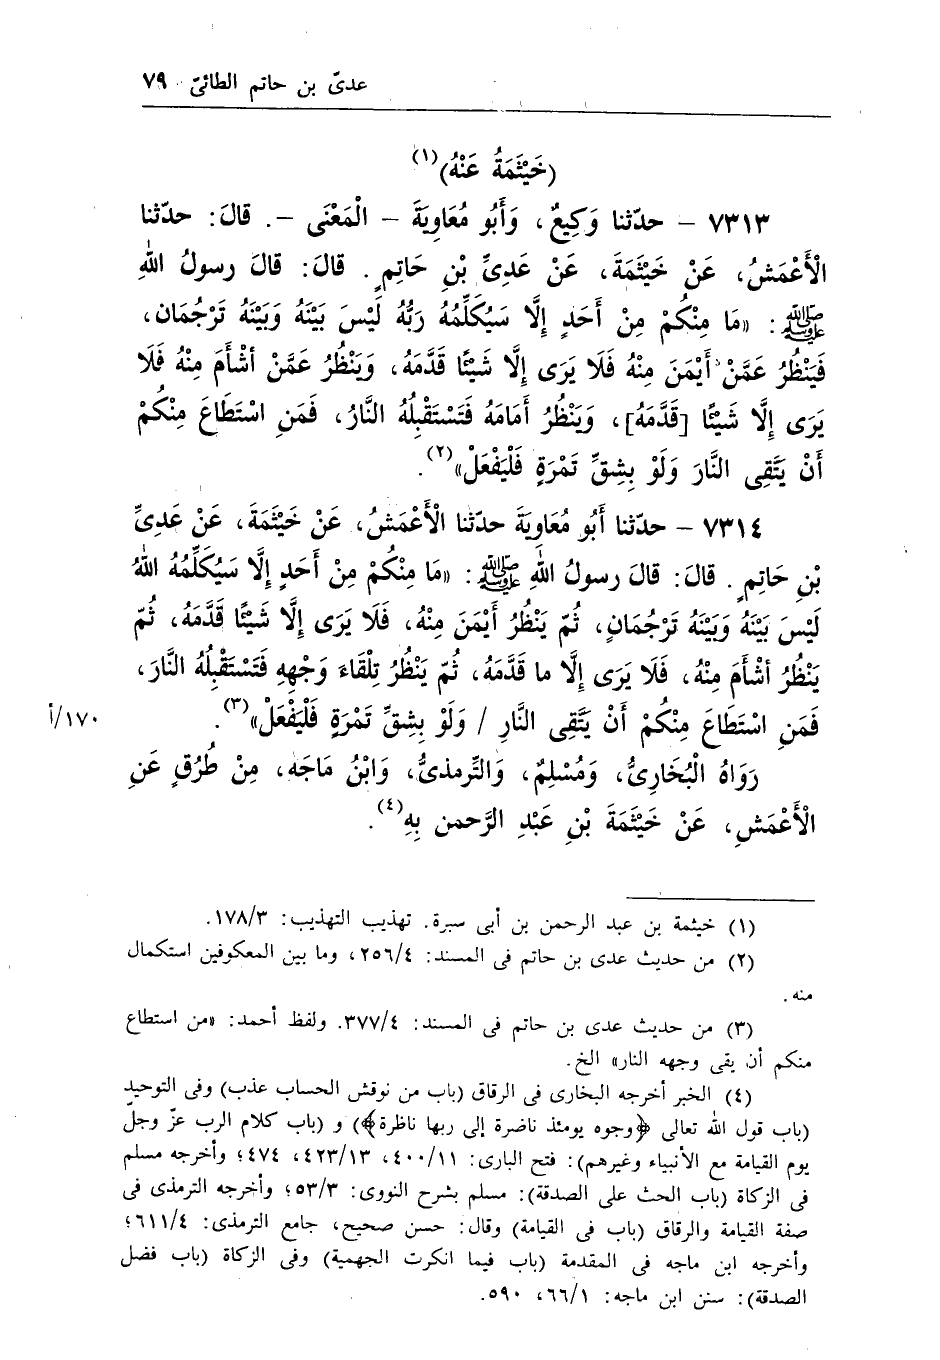 عدىّ بن حاتم الطائىّ ٧٩
(خَيْثَمَةُ عَنْهُ)(١)
٧٣١٣ – حدّثنا وَكِيعٌ، وَأَبُو مُعَاوِيَةَ – الْمَعْنَى –. قالَ: حدّثنا
الْأَعْمَشُ، عَنْ خَيْثَمَةَ، عَنْ عَدِىِّ بْنِ حَاتِمٍ. قالَ: قالَ رسولُ اللهِ
ﷺ: «مَا مِنْكُمْ مِنْ أَحَدٍ إِلَّا سَيُكَلِّمُهُ رَبُّهُ لَيْسَ بَيْنَهُ وَبَيْنَهُ تَرْجُمَان،
فَيَنْظُرُ عَمَّنْ أَيْمَنَ مِنْهُ فَلَا يَرَى إِلَّا شَيْئًا قَدَّمَهُ، وَيَنْظُر عَمَّنْ أشْأَمَ مِنْهُ فَلَا
يَرَى إِلَّا شَيْئًا [قَدَّمَهُ]، وَيَنْظُرُ أمَامَهُ فَتَسْتَقْبِلُهُ النَّارُ، فَمَنِ اسْتَطَاعَ مِنْكُمْ
أَنْ يَتَّقِى النَّارَ وَلَوْ بِشِقِّ تَمْرَةٍ فَلْيَفْعَلْ»(٢).
٧٣١٤ – حدّثنا أَبُو مُعَاوِيَةَ حدّثنا الْأَعْمَشُ، عَنْ خَيْثَمَةَ، عَنْ عَدِىِّ
بْنِ حَاتِمٍ. قالَ: قالَ رسولُ اللهِ ﷺ: «مَا مِنْكُمْ مِنْ أَحَدٍ إِلَّا سَيُكَلِّمُهُ اللهُ
لَيْسَ بَيْنَهُ وَبَيْنَهُ تَرْجُمَانٍ، ثُمّ يَنْظُرُ أيْمَنَ مِنْهُ، فَلَا يَرَى إِلَّا شَيْئًا قَدَّمَهُ، ثُمّ
يَنْظُرُ أشْأَمَ مِنْهُ، فَلَا يَرَى إِلَّا ما قَدَّمَهُ، ثُمّ يَنْظُرُ تِلْقَاءَ وَجْهِهِ فَتَسْتَقْبِلُهُ النَّارَ،
فَمَنِ اسْتَطَاعَ مِنْكُمْ أَنْ يَتَّقِى النَّارِ / وَلَوْ بِشِقِّ تَمْرَةٍ فَلْيَفْعَلْ»(٣). ١٧٠/أ
رَوَاهُ الْبُخَارِىُّ، وَمُسْلِمٌ، وَالتِّرمذىُّ، وَابْنُ مَاجَه، مِنْ طُرُقٍ عَنِ
الْأَعْمَشِ، عَنْ خَيْثَمَةَ بْنِ عَبْدِ الرَّحمن بِهِ(٤).
(١) خيثمة بن عبد الرحمن بن أبى سبرة. تهذيب التهذيب: ١٧٨/٣.
(٢) من حديث عدى بن حاتم فى المسند: ٢٥٦/٤، وما بين المعكوفين استكمال
منه.
(٣) من حديث عدى بن حاتم فى المسند: ٣٧٧/٤. ولفظ أحمد: «من استطاع
منكم أن يقى وجهه النار» الخ.
(٤) الخبر أخرجه البخارى فى الرقاق (باب من نوقش الحساب عذب) وفى التوحيد
(باب قول الله تعالى ﴿وجوه يومئذ ناضرة إلى ربها ناظرة﴾) و (باب كلام الرب عزّ وجلّ
يوم القيامة مع الأنبياء وغيرهم): فتح البارى: ٤٠٠/١١، ٤٢٣/١٣، ٤٧٤؛ وأخرجه مسلم
فى الزكاة (باب الحث على الصدقة): مسلم بشرح النووى: ٥٣/٣؛ وأخرجه الترمذى فى
صفة القيامة والرقاق (باب فى القيامة) وقال: حسن صحيح، جامع الترمذى: ٦١١/٤؛
وأخرجه ابن ماجه فى المقدمة (باب فيما انكرت الجهمية) وفى الزكاة (باب فضل
الصدقة): سنن ابن ماجه: ٦٦/١، ٥٩٠.